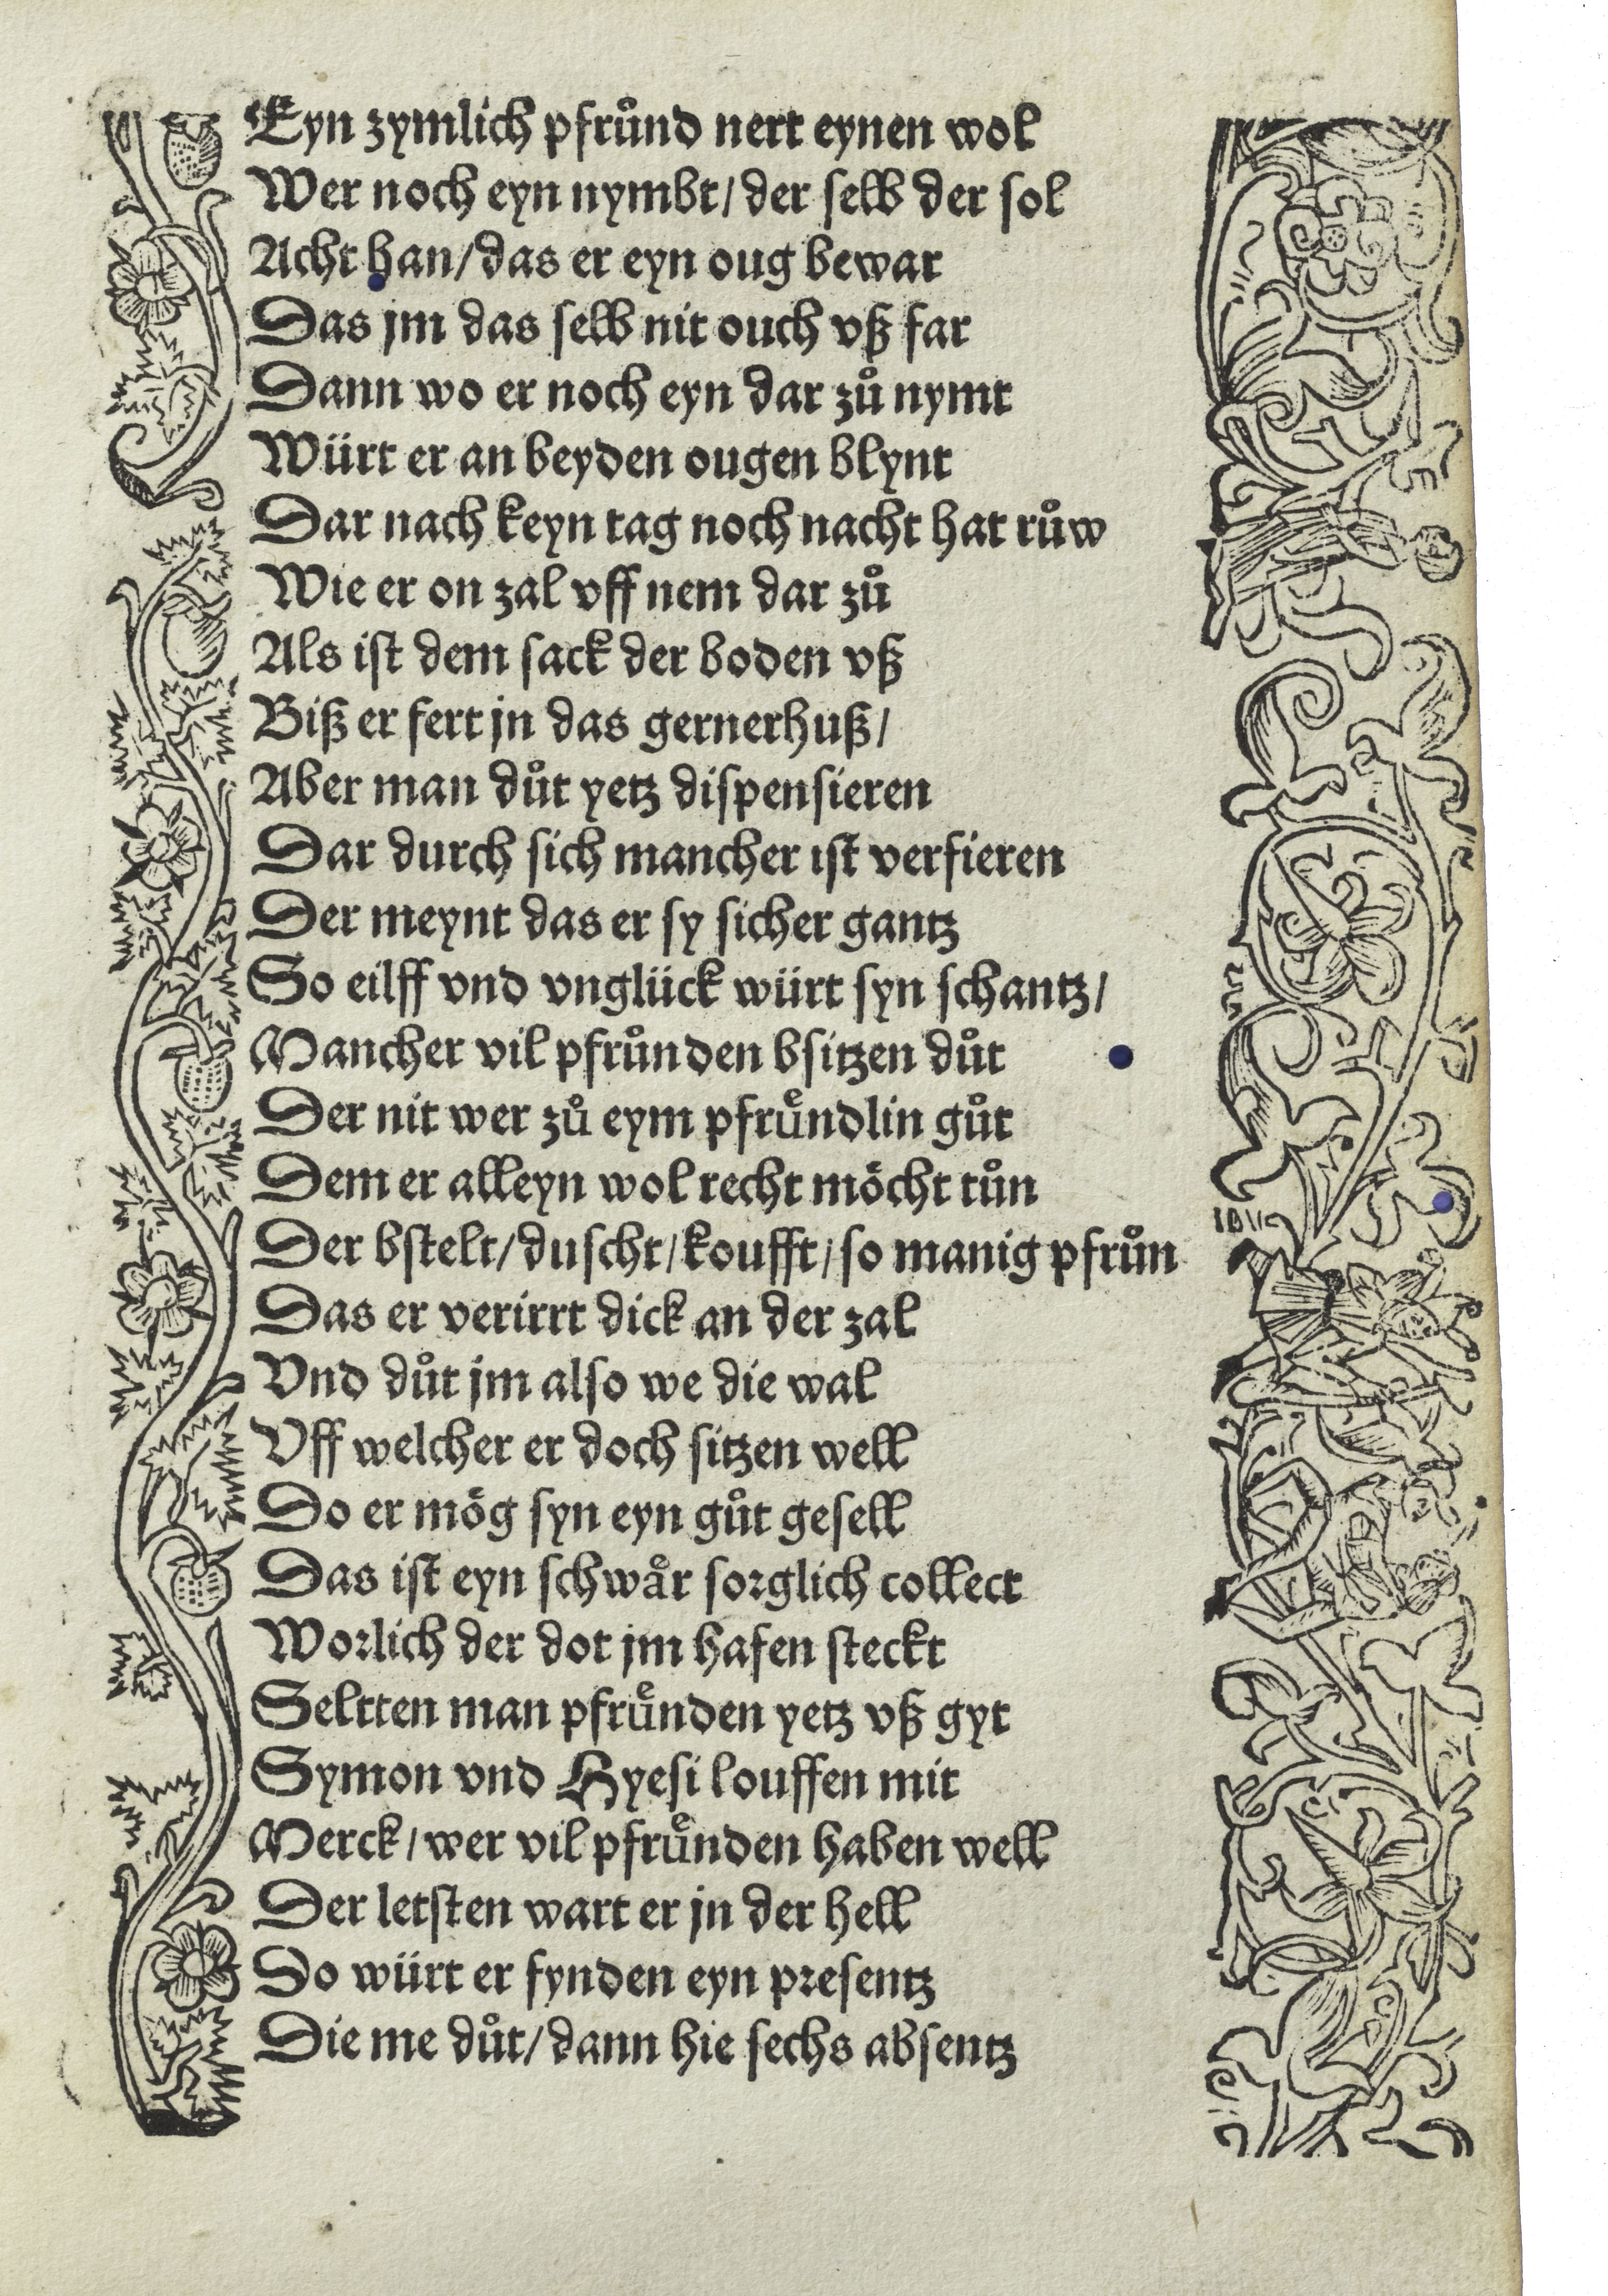 Eyn zymlich pfrůnd nert eynen wol
Wer noch eyn nymbt/ der ſelb der ſol
Acht han/das er eyn oug bewar
Das jm das ſelb nit ouch vß far
Dann wo er noch eyn dar zů nymt
Würt er an beyden ougen blynt
Dar nach keyn tag noch nacht hat růw
Wie er on zal vff nem dar zů
Als iſt dem ſack der boden vß
Biß er fert jn das gernerhuß/
Aber man důt yetz diſpenſieren
Dar durch ſich mancher iſt verfieren
Der meynt das er ſy ſicher gantz
So eilff vnd vnglück würt ſyn ſchantz/
Mancher vil pfrůnden bſitzen důt
Der nit wer zů eym pfruͤndlin gůt
Dem er alleyn wol recht moͤcht tůn
Der bſtelt/duſcht/koufft/ſo manig pfrůn
Das er verirrt dick an der zal
Vnd důt jm alſo we die wal
Vff welcher er doch ſitzen well
Do er moͤg ſyn eyn gůt geſell
Das iſt eyn ſchwaͤr ſorglich collect
Worlich der dot jm hafen ſteckt
Seltten man pfruͤnden yetz vß gyt
Symon vnd Hyeſi louffen mit
Merck/wer vil pfruͤnden haben well
Der letſten wart er jn der hell
Do würt er fynden eyn preſentz
Die me důt/dann hie ſechs abſentz